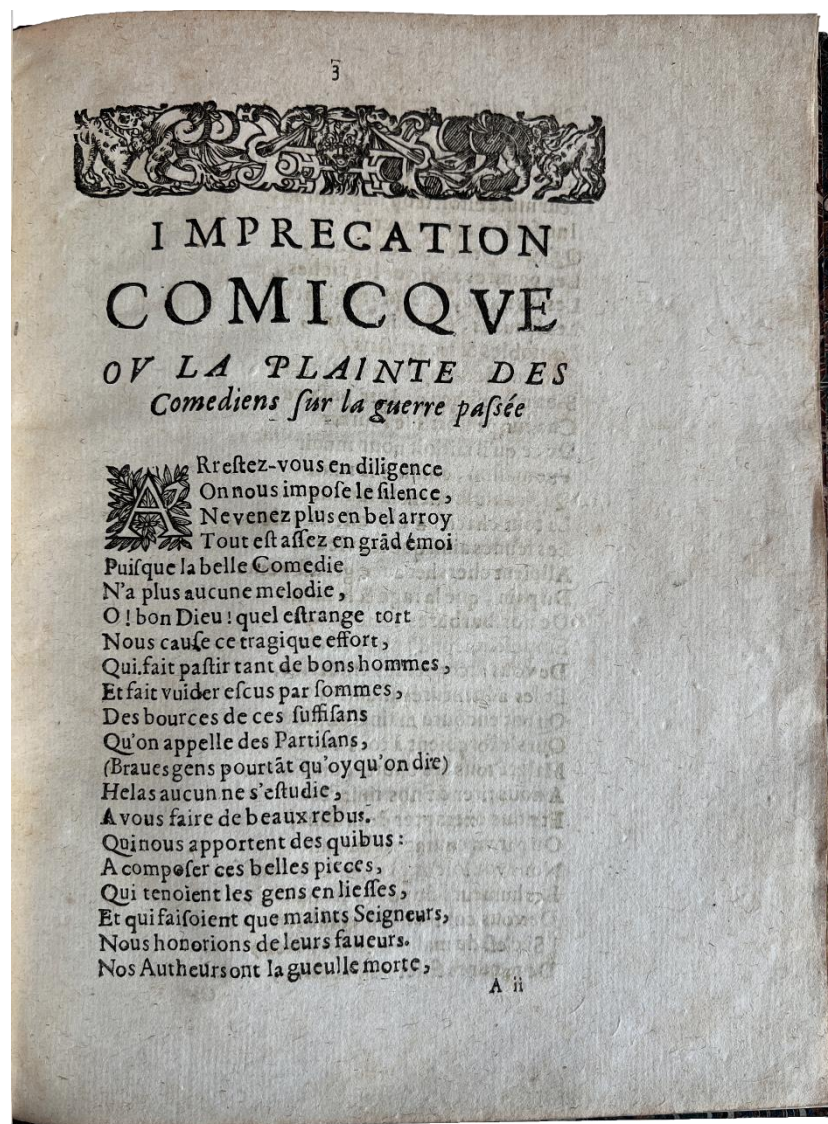 3
IMPRECATION
COMICQVE
OV LA PLAINTE DES
Comediens ſur la guerre paſsée
ARreſtez-vous en diligence
On nous impoſe le ſilence,
Ne venez plus en bel arroy
Tout eſt aſſez en grãd émoi
Puiſque la belle Comedie
N'a plus aucune melodie,
O ! bon Dieu ! quel eſtrange tort
Nous cauſe ce tragique effort,
Qui.fait paſtir tant de bons hommes,
Et fait vuider eſcus par ſommes,
Des bources de ces ſuffiſans
Qu'on appelle des Partiſans,
(Braues gens pourtãt qu'oy qu'on die)
Helas aucun ne s'eſtudie,
A vous faire de beaux rebus.
Qui nous apportent des quibus :
A compoſer ces belles pieces,
Qui tenoient les gens en lieſſes,
Et qui faiſoient que maints Seigneurs,
Nous honorions de leurs faueurs.
Nos Autheurs ont la gueulle morte,
A ii